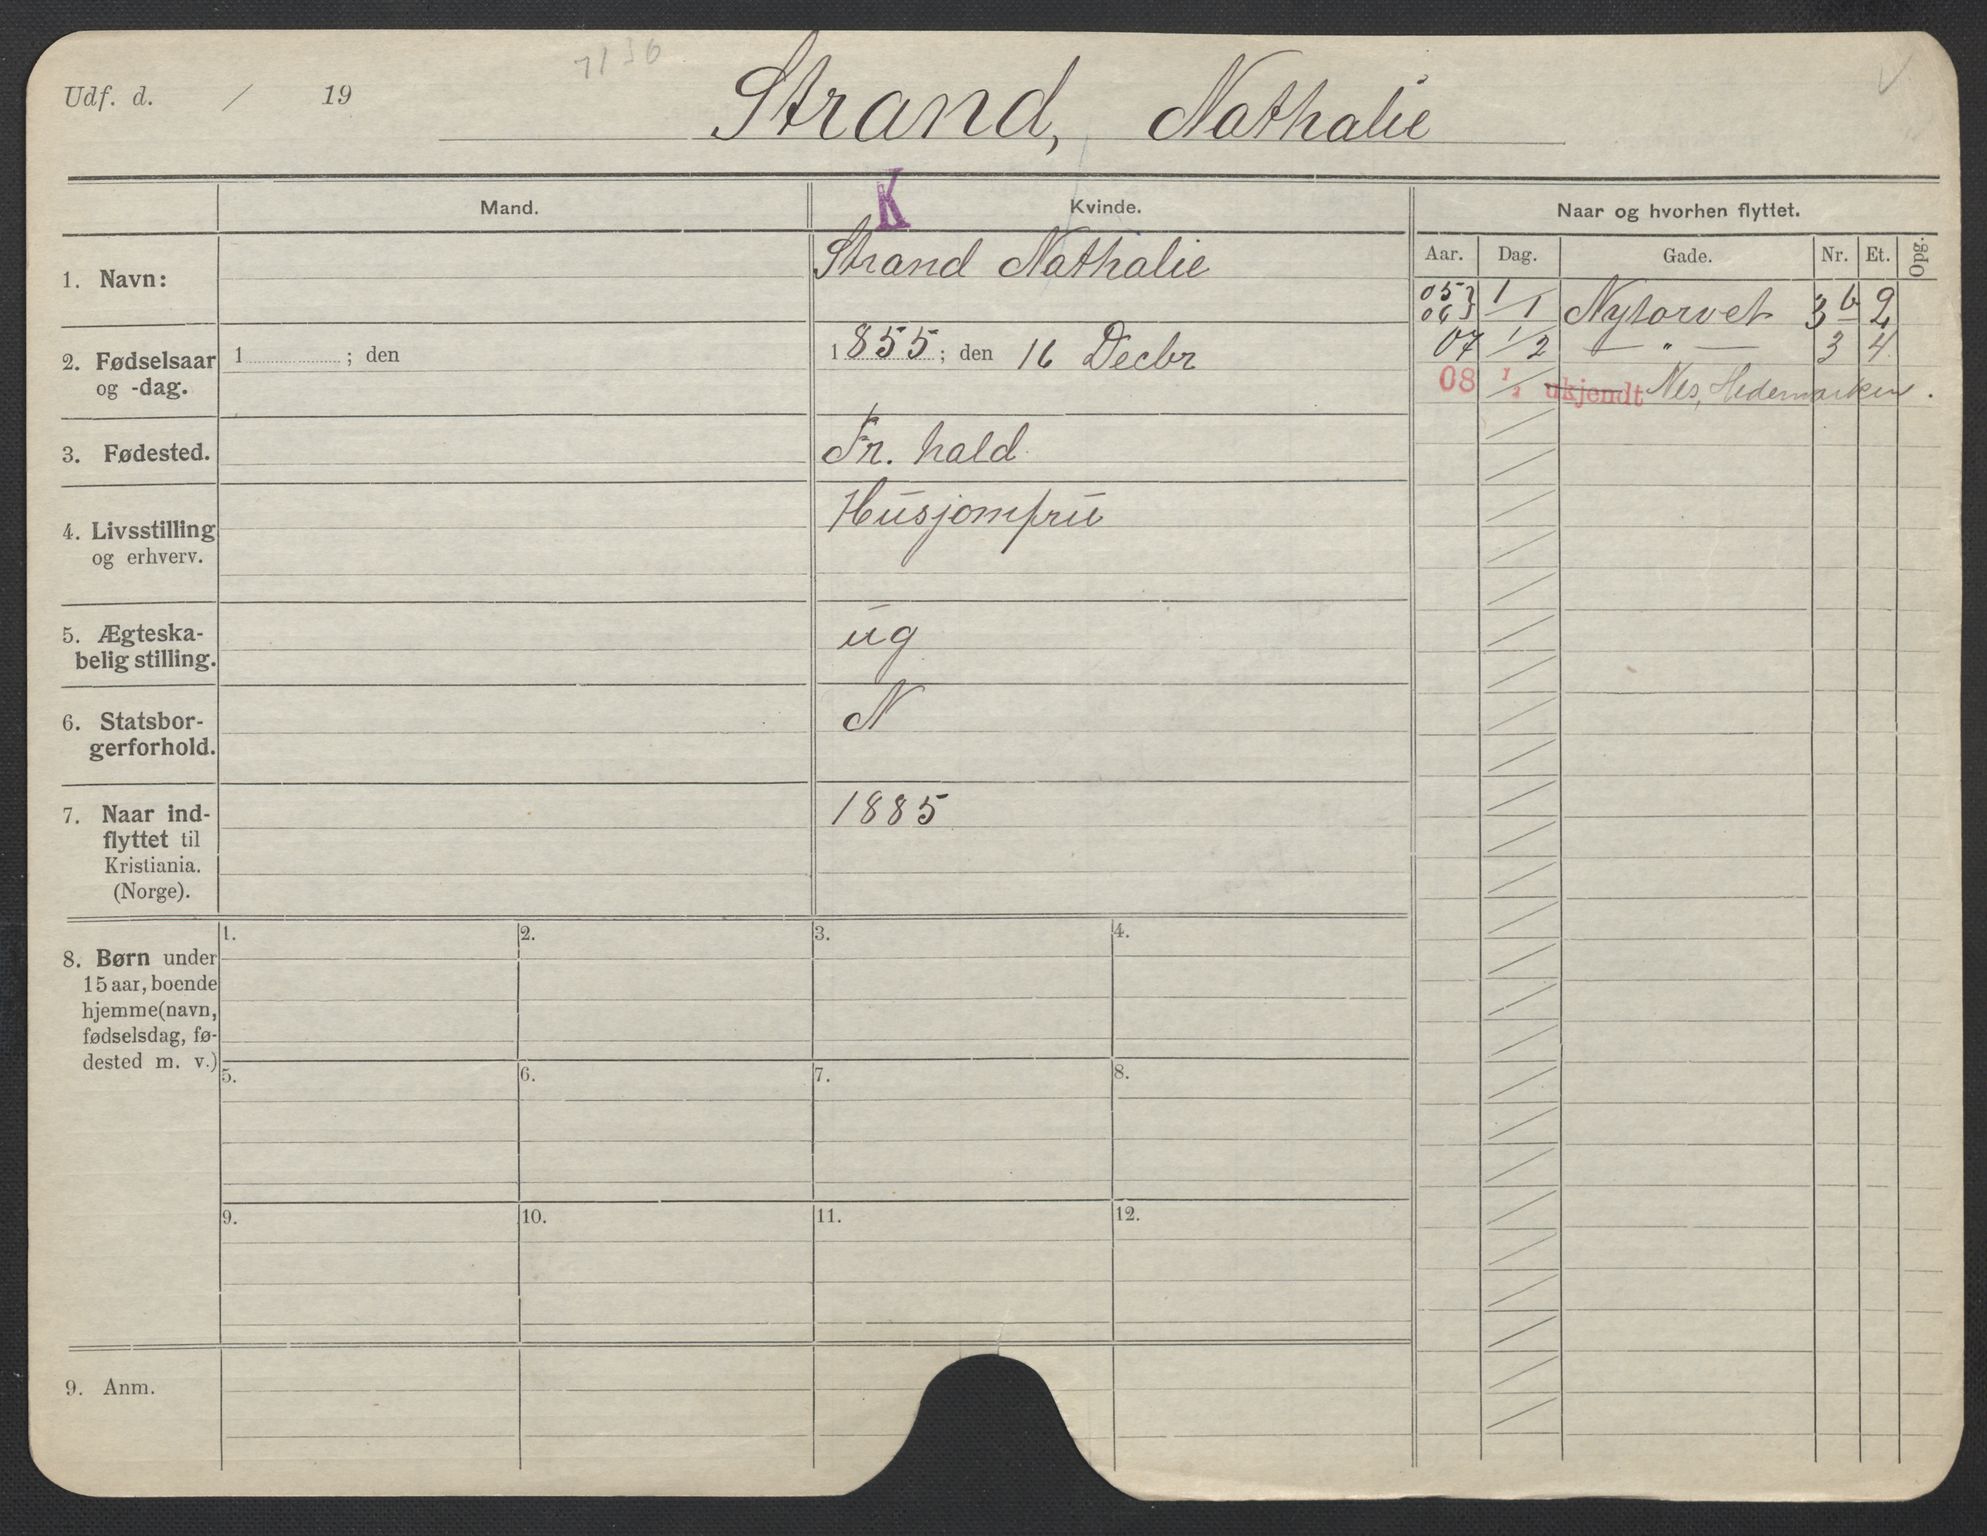 Udf. d. / 19
Strand, Nathalie
Mand.
K
Kvinde.
Naar og hvorhen flyttet.
Aar. Dag. Gade. Nr. Et. Opg.
1. Navn:
Strand Nathalie
05 } 1/1 Nytorvet 3b 2
06 }
07 1/2 — " — 3 4
08 1/2 ukjendt Nes, Hedemarken.
2. Fødselsaar
og -dag.
1 ; den
1855; den 16 Decbr
3. Fødested.
Fr. hald
4. Livsstilling
og erhverv.
Husjomfru
5. Ægteska-
belig stilling.
ug
6. Statsbor-
gerforhold.
N
7. Naar ind-
flyttet til
Kristiania.
(Norge).
1885
8. Børn under
15 aar, boende
hjemme (navn,
fødselsdag, fø-
dested m. v.)
1. 2. 3. 4.
5. 6. 7. 8.
9. 10. 11. 12.
9. Anm.